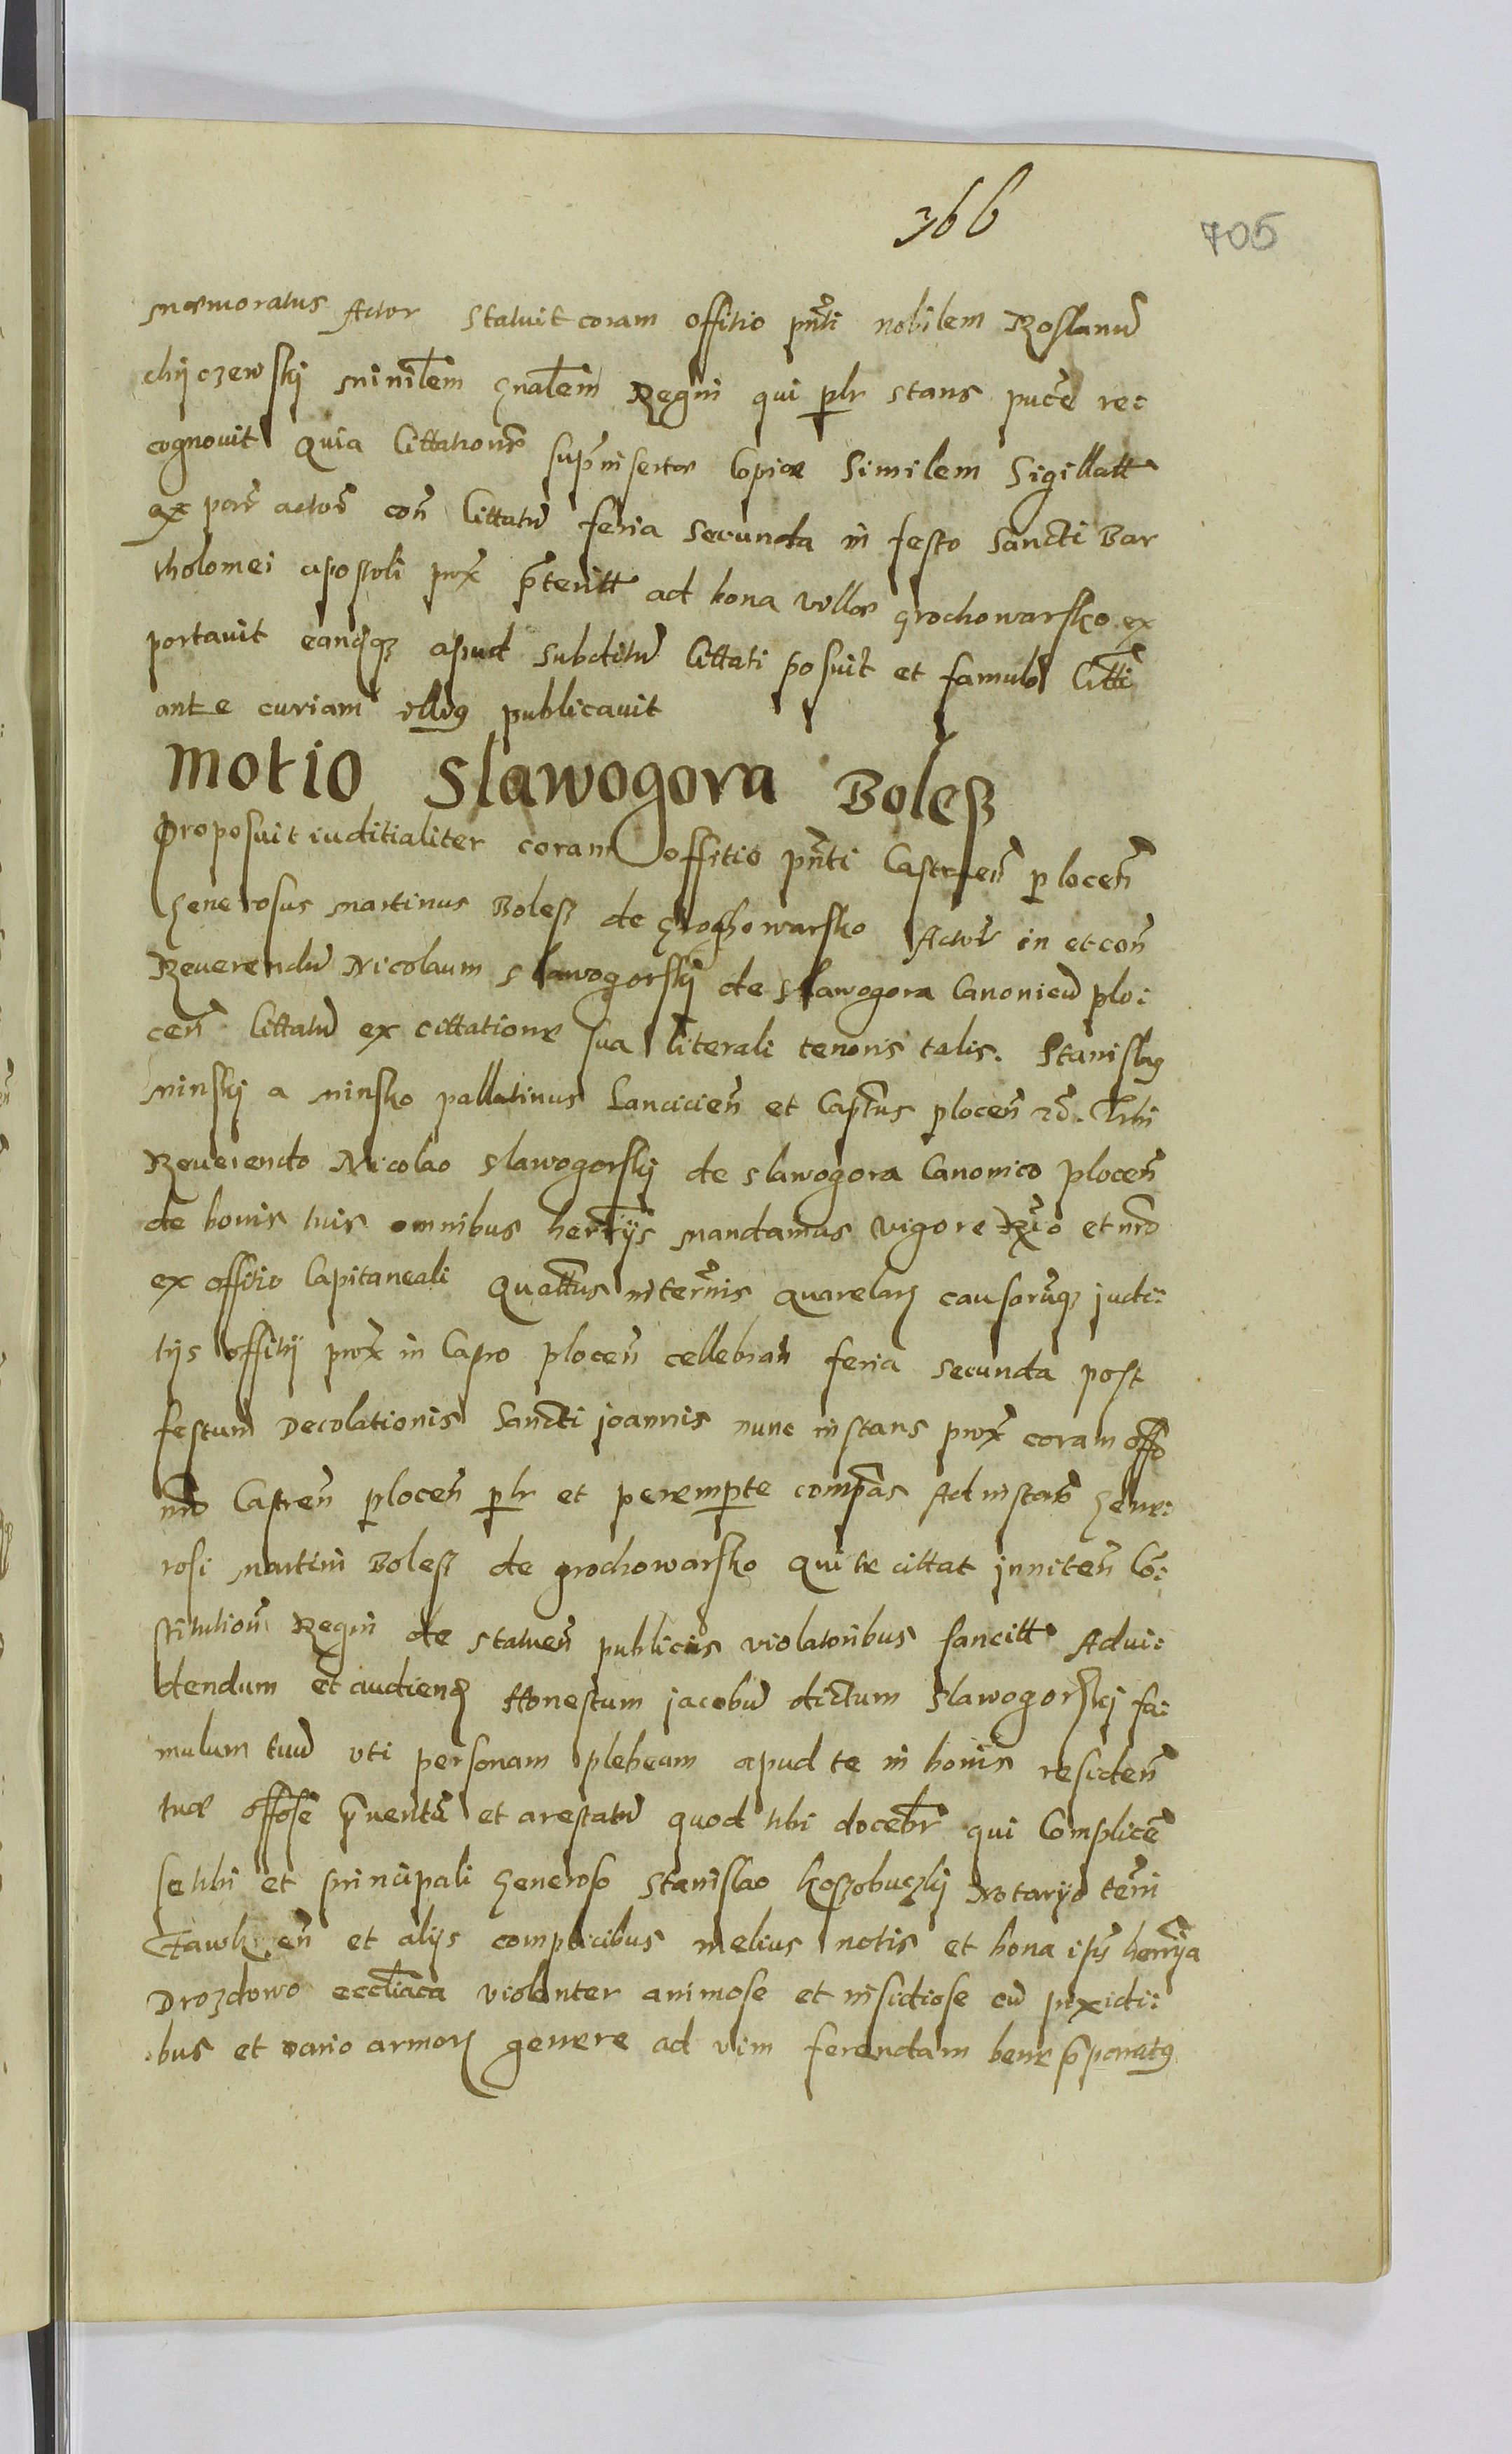 366
705
memoratus Actor statuit coram offitio pnti nobilem Roslanu
chyczewskj ministlem Gnalem Regni qui plr stans puce re:
cognouit quia Cittatione suprainsertæ Copiæ Similem Sigillatt
ex parte actor con Cittatu feria secunda in festo Sancti Bar
tholomei apostoli prox preteritt ad bona villæ grochowarsko ex
portauit eandemq apud subditu Cittati posuit et famulo Citti
ante curiam illius publicauit
Motio Slawogora Bolesz
Proposuit iuditialiter coram offitio pnti Castren plocen
Generosus martinus Bolesz de Grochowarsko Actor in et con
Reuerendu Nicolaum slawogorskj de slawogora Canonicu plo:
cen Cittatu ex cittatione sua literali tenoris talis. Stanislaus
minskj a minsko pallatinus Lancicien et Captus plocen Tibi
Reuerendo Nicolao slawogorskj de slawogora Canonico plocen
de bonis tuis omnibus herrijs mandamus vigore Rgio et nro
ex offitio Capitaneali Quattus in terminis quærelarum causarumq judi:
tijs offitij prox in Castro plocen cellebran feria secunda post
festum Decolationis Sancti joannis nunc instans prox coram offo
nro Castren plocen plr et perempte compas Ad instan Gene:
rosi martini Bolesz de grochowarsko qui te cittat inniten Co:
stitution Regni de statuen publicis violatoribus sancitt Ad vi:
dendum et audiend Honestum jacobu dictum slawogorskj fa:
mulum tuu vti personam plebeam apud te in bonis residen
tuæ offose preuentu et arestatu quod tibi docebr qui Complice
se tibi et principali Generoso stanislao koszobuczkj Notaryo terri
et alijs complicibus melius notis et bona ipsius herrija
Drozdowo eccliaca violenter animose et insidiose cu pixidi:
bus et vario armorum genere ad vim ferendam bene preparatus